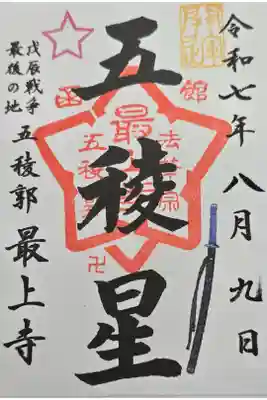 令和七年八月九日
五稜星
函館
最
法華宗
五稜
卍
戊辰戦争
最後の地
五稜郭 最上寺